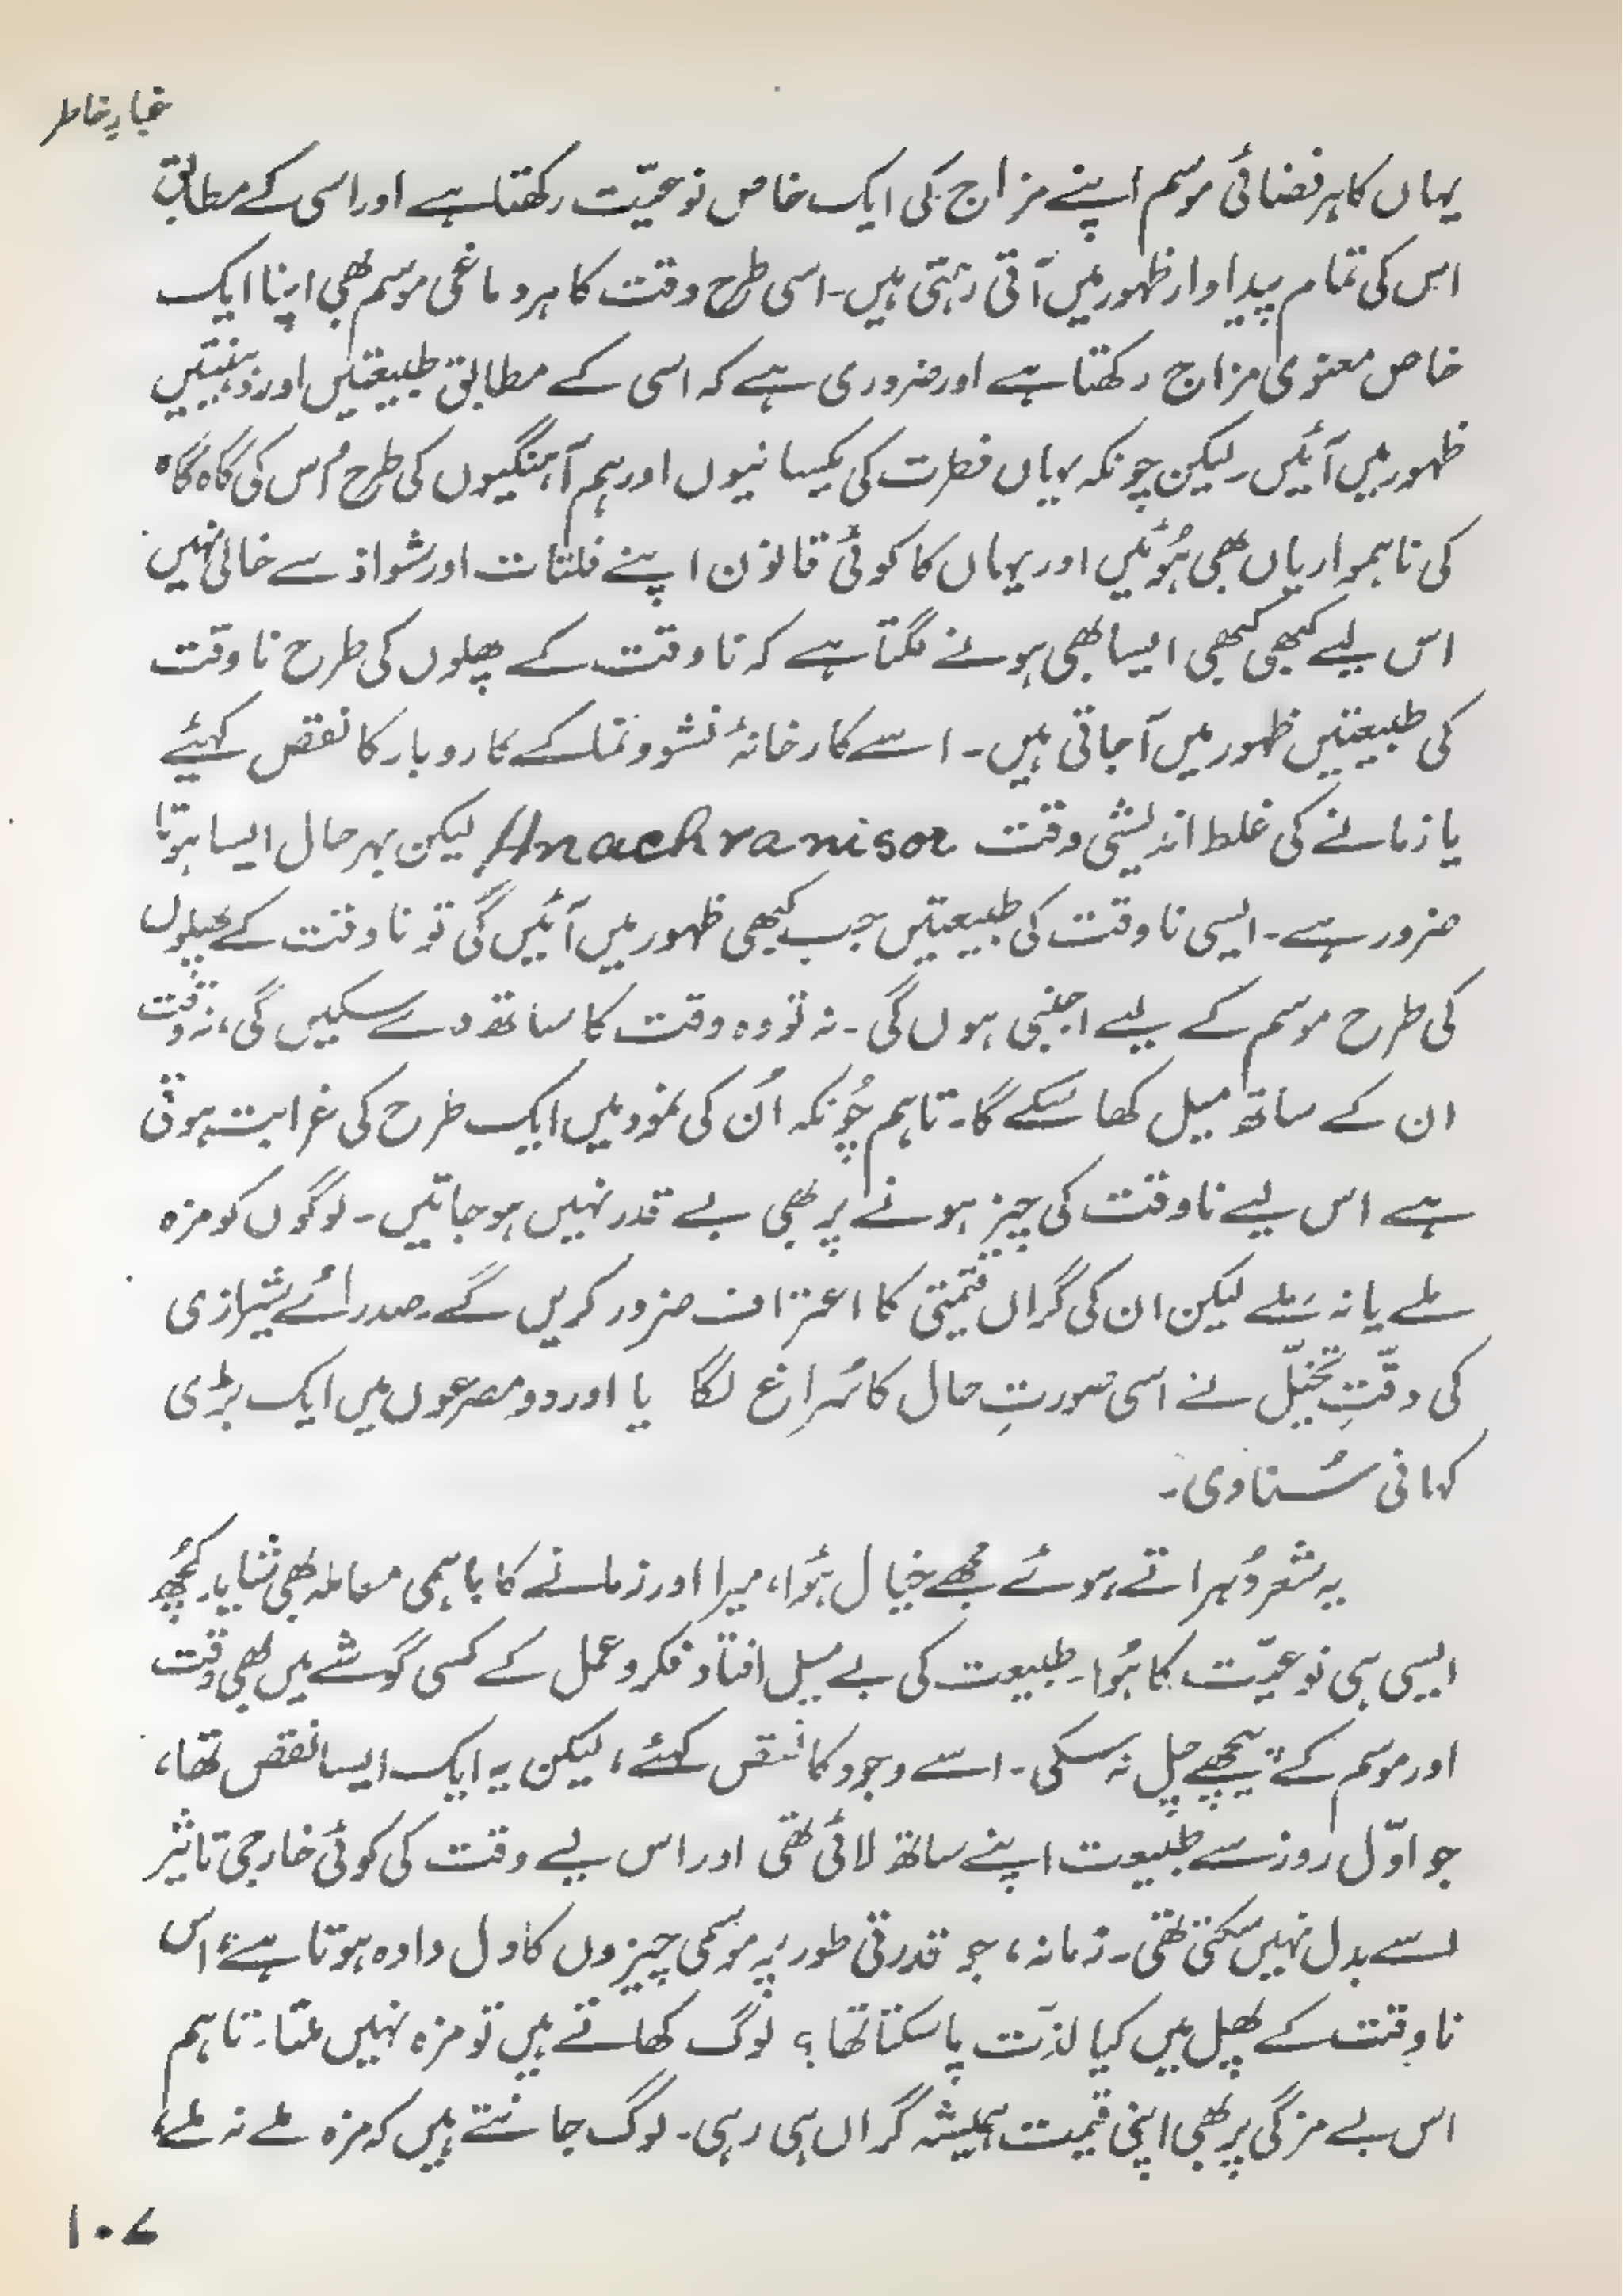 غبارِ خاطر
یہاں کا ہر فضائی موسم اپنے مزاج کی ایک خاص نوعیّت رکھتا ہے اور اسی کے مطابق
اس کی تمام پیداوار ظہور میں آتی رہتی ہیں۔ اسی طرح وقت کا ہر دماغی موسم بھی اپنا ایک
خاص معنوی مزاج رکھتا ہے اور ضروری ہے کہ اسی کے مطابق طبیعتیں اور ذہنیتیں
ظہور میں آئیں۔ لیکن چونکہ یہاں فطرت کی یکسانیوں اور ہم آہنگیوں کی طرح اُس کی گاہ گاہ
کی ناہمواریاں بھی ہُوئیں اور یہاں کا کوئی قانون اپنے فلتات اور شواذ سے خالی نہیں
اس لیے کبھی کبھی ایسا بھی ہونے لگتا ہے کہ ناوقت کے پھلوں کی طرح ناوقت
کی طبیعتیں ظہور میں آجاتی ہیں۔ اسے کارخانۂ نشوونما کے کاروبار کا نقص کہیئے
یا زمانے کی غلط اندیشی وقت Anachranisor لیکن بہرحال ایسا ہوتا
ضرور ہے۔ ایسی ناوقت کی طبیعتیں جب کبھی ظہور میں آئیں گی تو ناوقت کے پھلوں
کی طرح موسم کے لیے اجنبی ہوں گی۔ نہ تو وہ وقت کا ساتھ دے سکیں گی، نہ وقت
ان کے ساتھ میل کھا سکے گا۔ تاہم چُونکہ اُن کی نمود میں ایک طرح کی غرابت ہوتی
ہے اس لیے ناوقت کی چیز ہونے پر بھی بے قدر نہیں ہو جاتیں۔ لوگوں کو مزہ
ملے یا نہ مَلے لیکن ان کی گراں قیمتی کا اعتراف ضرور کریں گے۔ صدرائے شیرازی
کی دقّتِ تخیّل نے اسی صورتِ حال کا سُراغ لگا یا اور دو مصرعوں میں ایک بڑی
کہانی سُنا دی۔
یہ شعر دُہراتے ہوئے مُجھے خیال ہُوا، میرا اور زمانے کا باہمی معاملہ بھی شاید کُچھ
ایسی ہی نوعیّت کا ہُوا۔ طبیعت کی بے میل افتاد فکر و عمل کے کسی گوشے میں بھی وقت
اور موسم کے پیچھے چل نہ سکی۔ اسے وجود کا نقص کہئے، لیکن یہ ایک ایسا نقص تھا،
جو اوّل روز سے طبیعت اپنے ساتھ لائی تھی اور اس لیے وقت کی کوئی خارجی تاثیر
اسے بدل نہیں سکتی تھی۔ زمانہ، جو قدرتی طور پر موسمی چیزوں کا دل دادہ ہوتا ہے، اس
ناوقت کے پھل میں کیا لذّت پا سکتا تھا؟ لوگ کھاتے ہیں تو مزہ نہیں ملتا۔ تاہم
اس بے مزگی پر بھی اپنی قیمت ہمیشہ گراں ہی رہی۔ لوگ جانتے ہیں کہ مزہ ملے نہ ملے،
۱۰۷